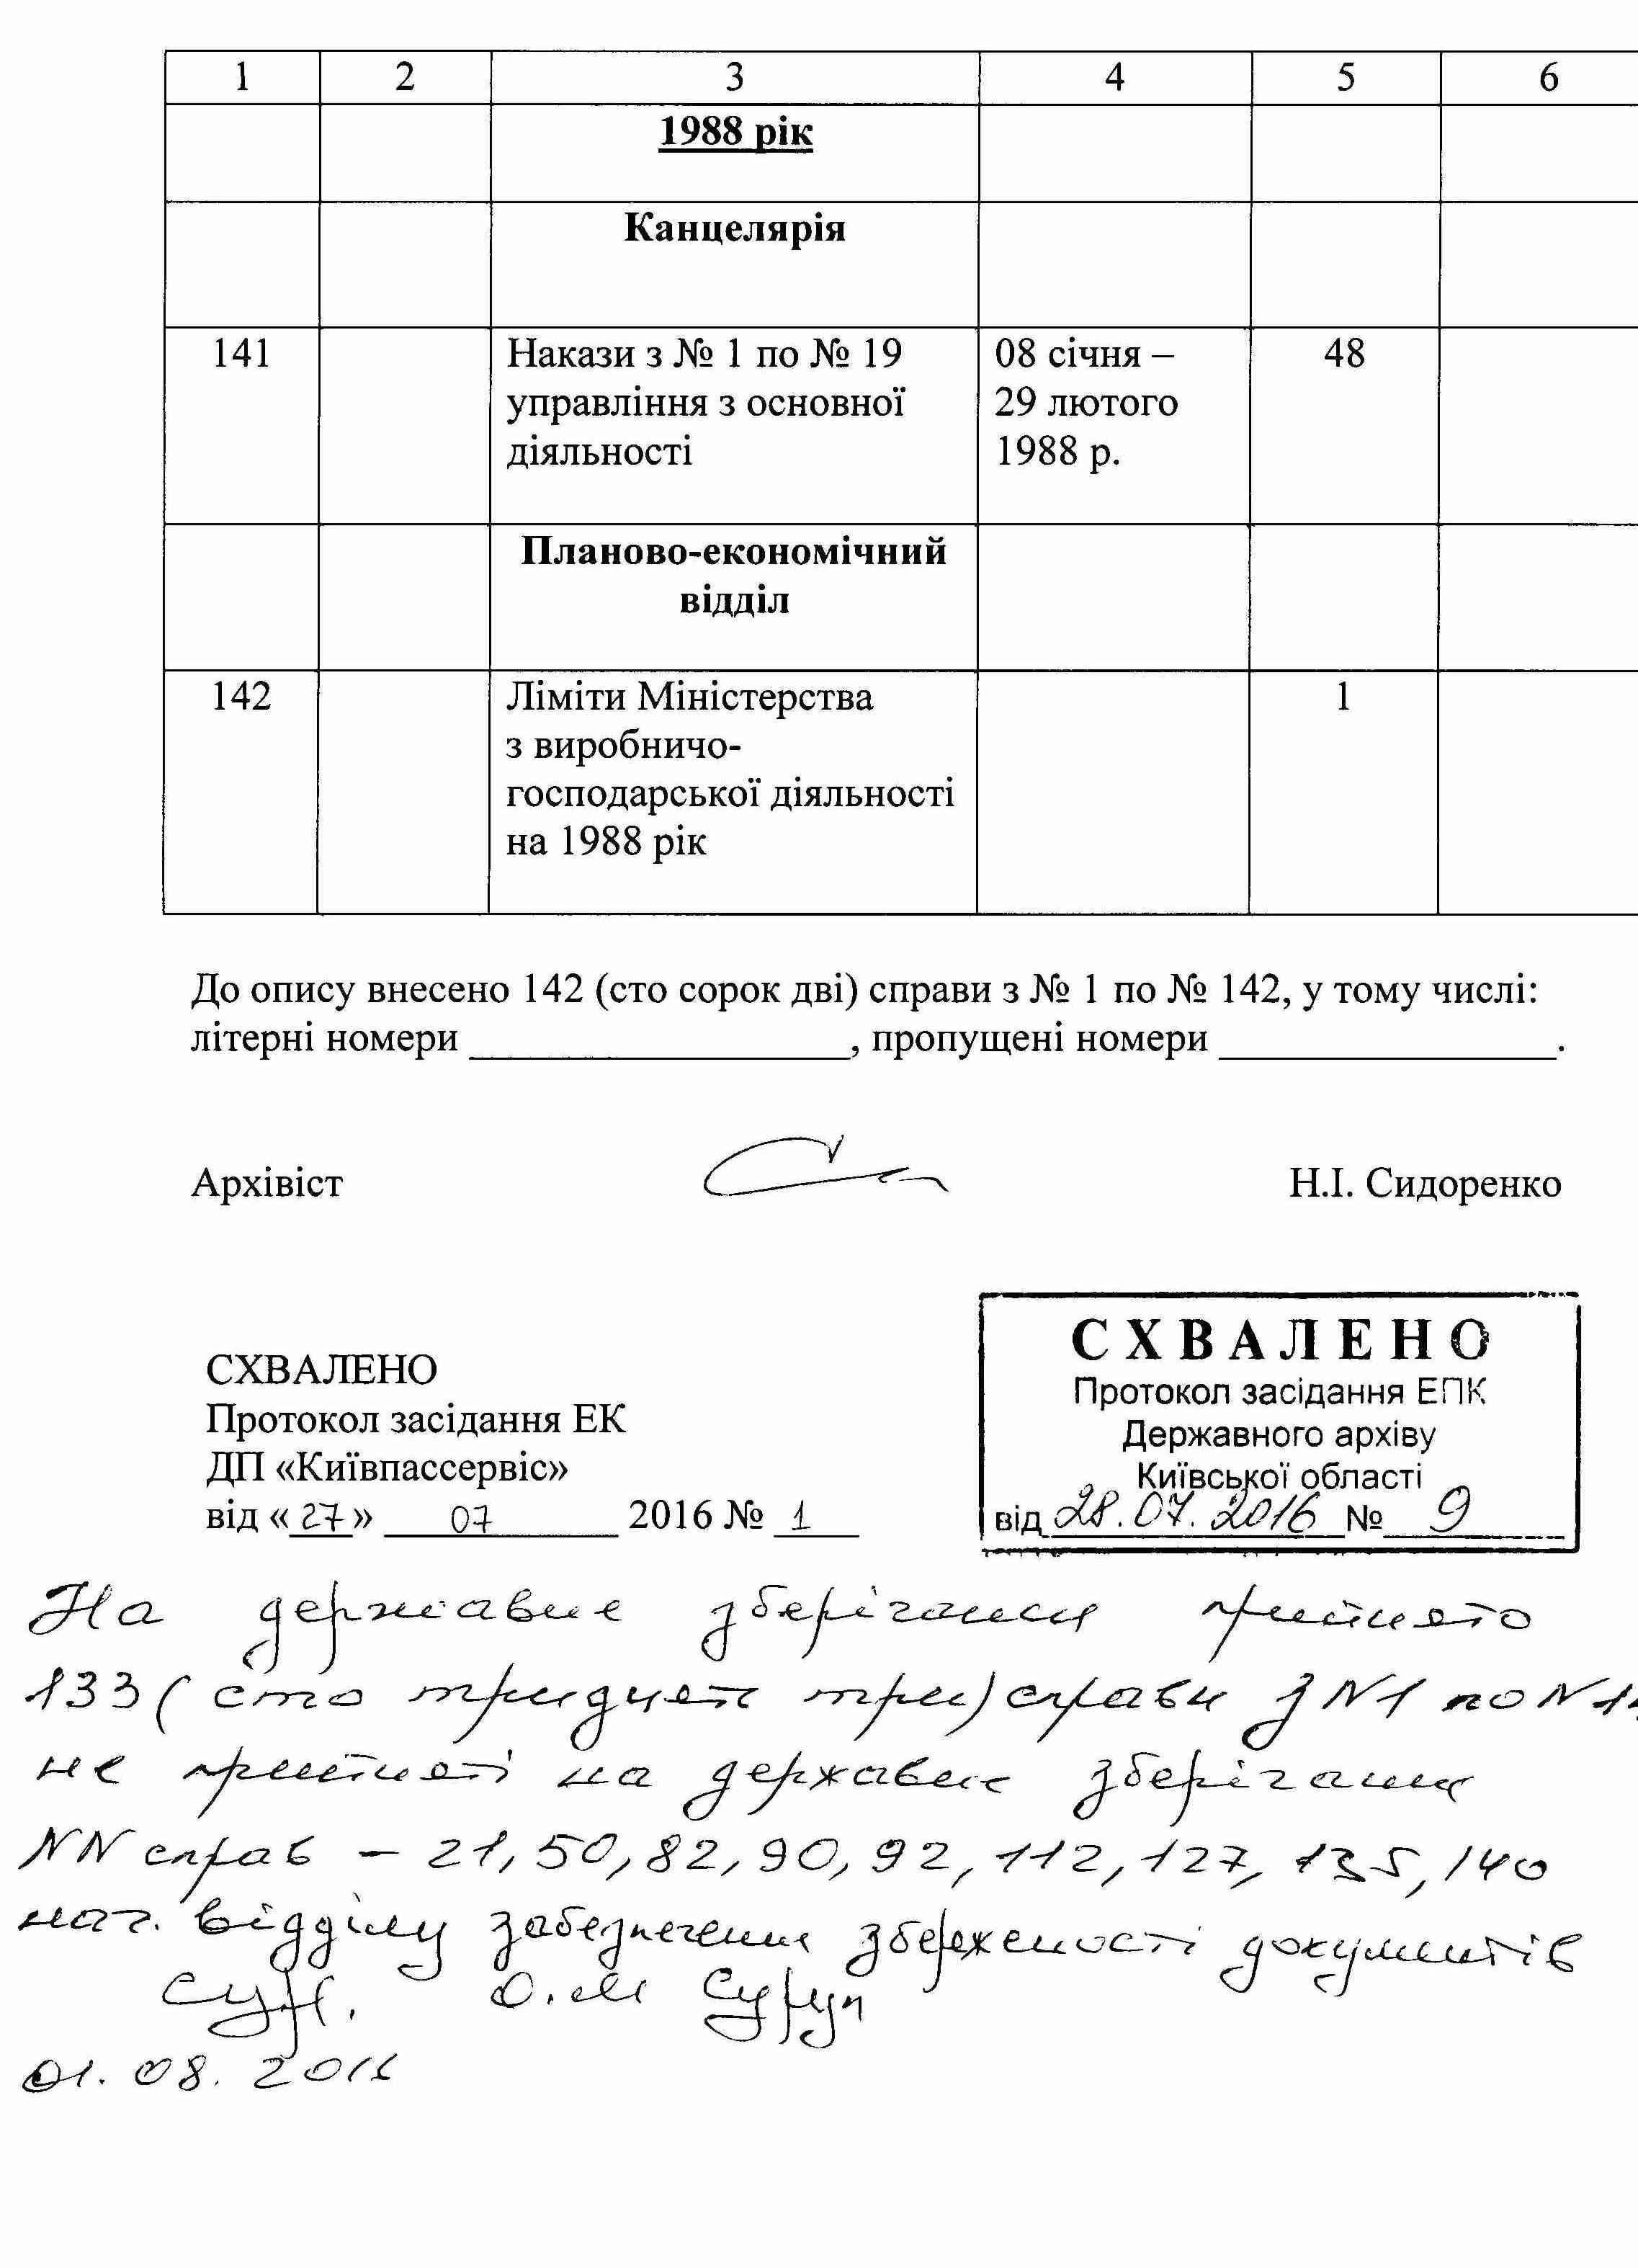 1 2 3 4 5 6
1988 рік
Канцелярія
141 Накази з № 1 по № 19 08 січня – 48
управління з основної 29 лютого
діяльності 1988 р.
Планово-економічний
відділ
142 Ліміти Міністерства 1
з виробничо-
господарської діяльності
на 1988 рік
До опису внесено 142 (сто сорок дві) справи з № 1 по № 142, у тому числі:
літерні номери __________________, пропущені номери ________________.
Архівіст Н.І. Сидоренко
СХВАЛЕНО
Протокол засідання ЕК
ДП «Київпассервіс»
від «27» 07 2016 № 1
СХВАЛЕНО
Протокол засідання ЕПК
Державного архіву
Київської області
від 28.07.2016 № 9
На державне зберігання прийнято
133 (сто тридцять три) справи з N1 по N
не прийняті на державне зберігання
NN справ – 21, 50, 82, 90, 92, 112, 127, 135, 140
нач. відділу забезпечення збереженості документів
О.М
01.08.2016